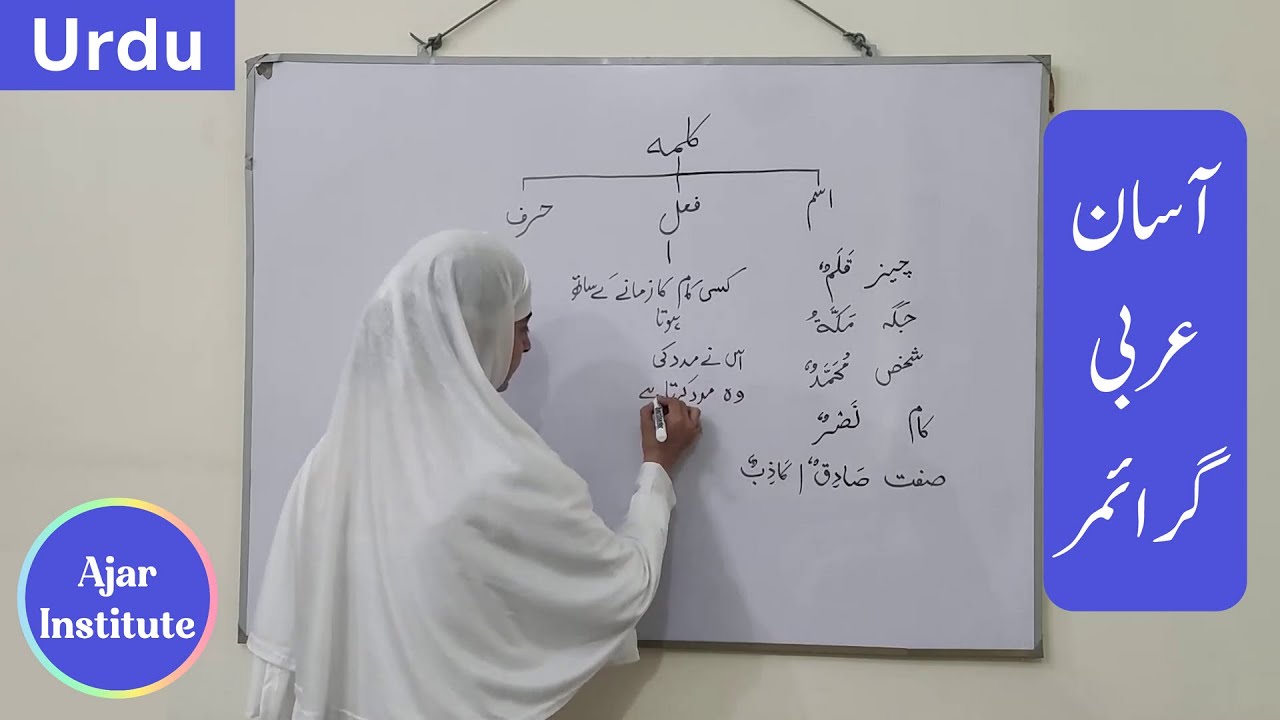 Urdu
کلمہ
اسم
فعل
حرف
چیز قَلَمٌ
جگہ مَکَّةُ
شخص مُحَمَّدٌ
کام نَصْرٌ
صفت صَادِقٌ / کَاذِبٌ
کسی کام کا زمانے کے ساتھ
ہونا
اس نے مدد کی
وہ مدد کرتا ہے
آسان
عربی
گرائمر
Ajar
Institute